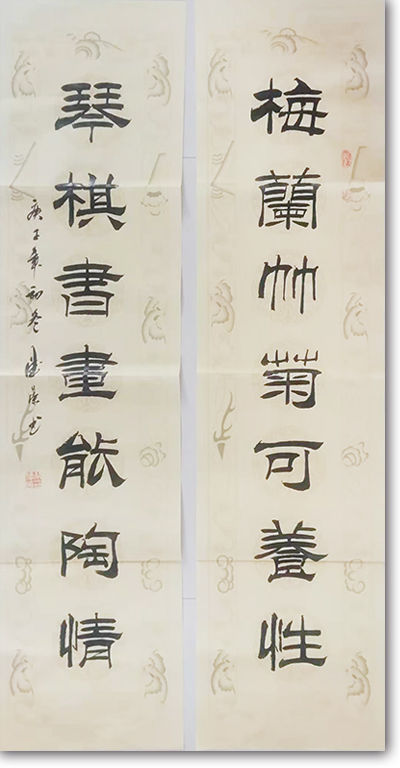 梅蘭竹菊可養性
琴棋書畫能陶情
庚子年初冬